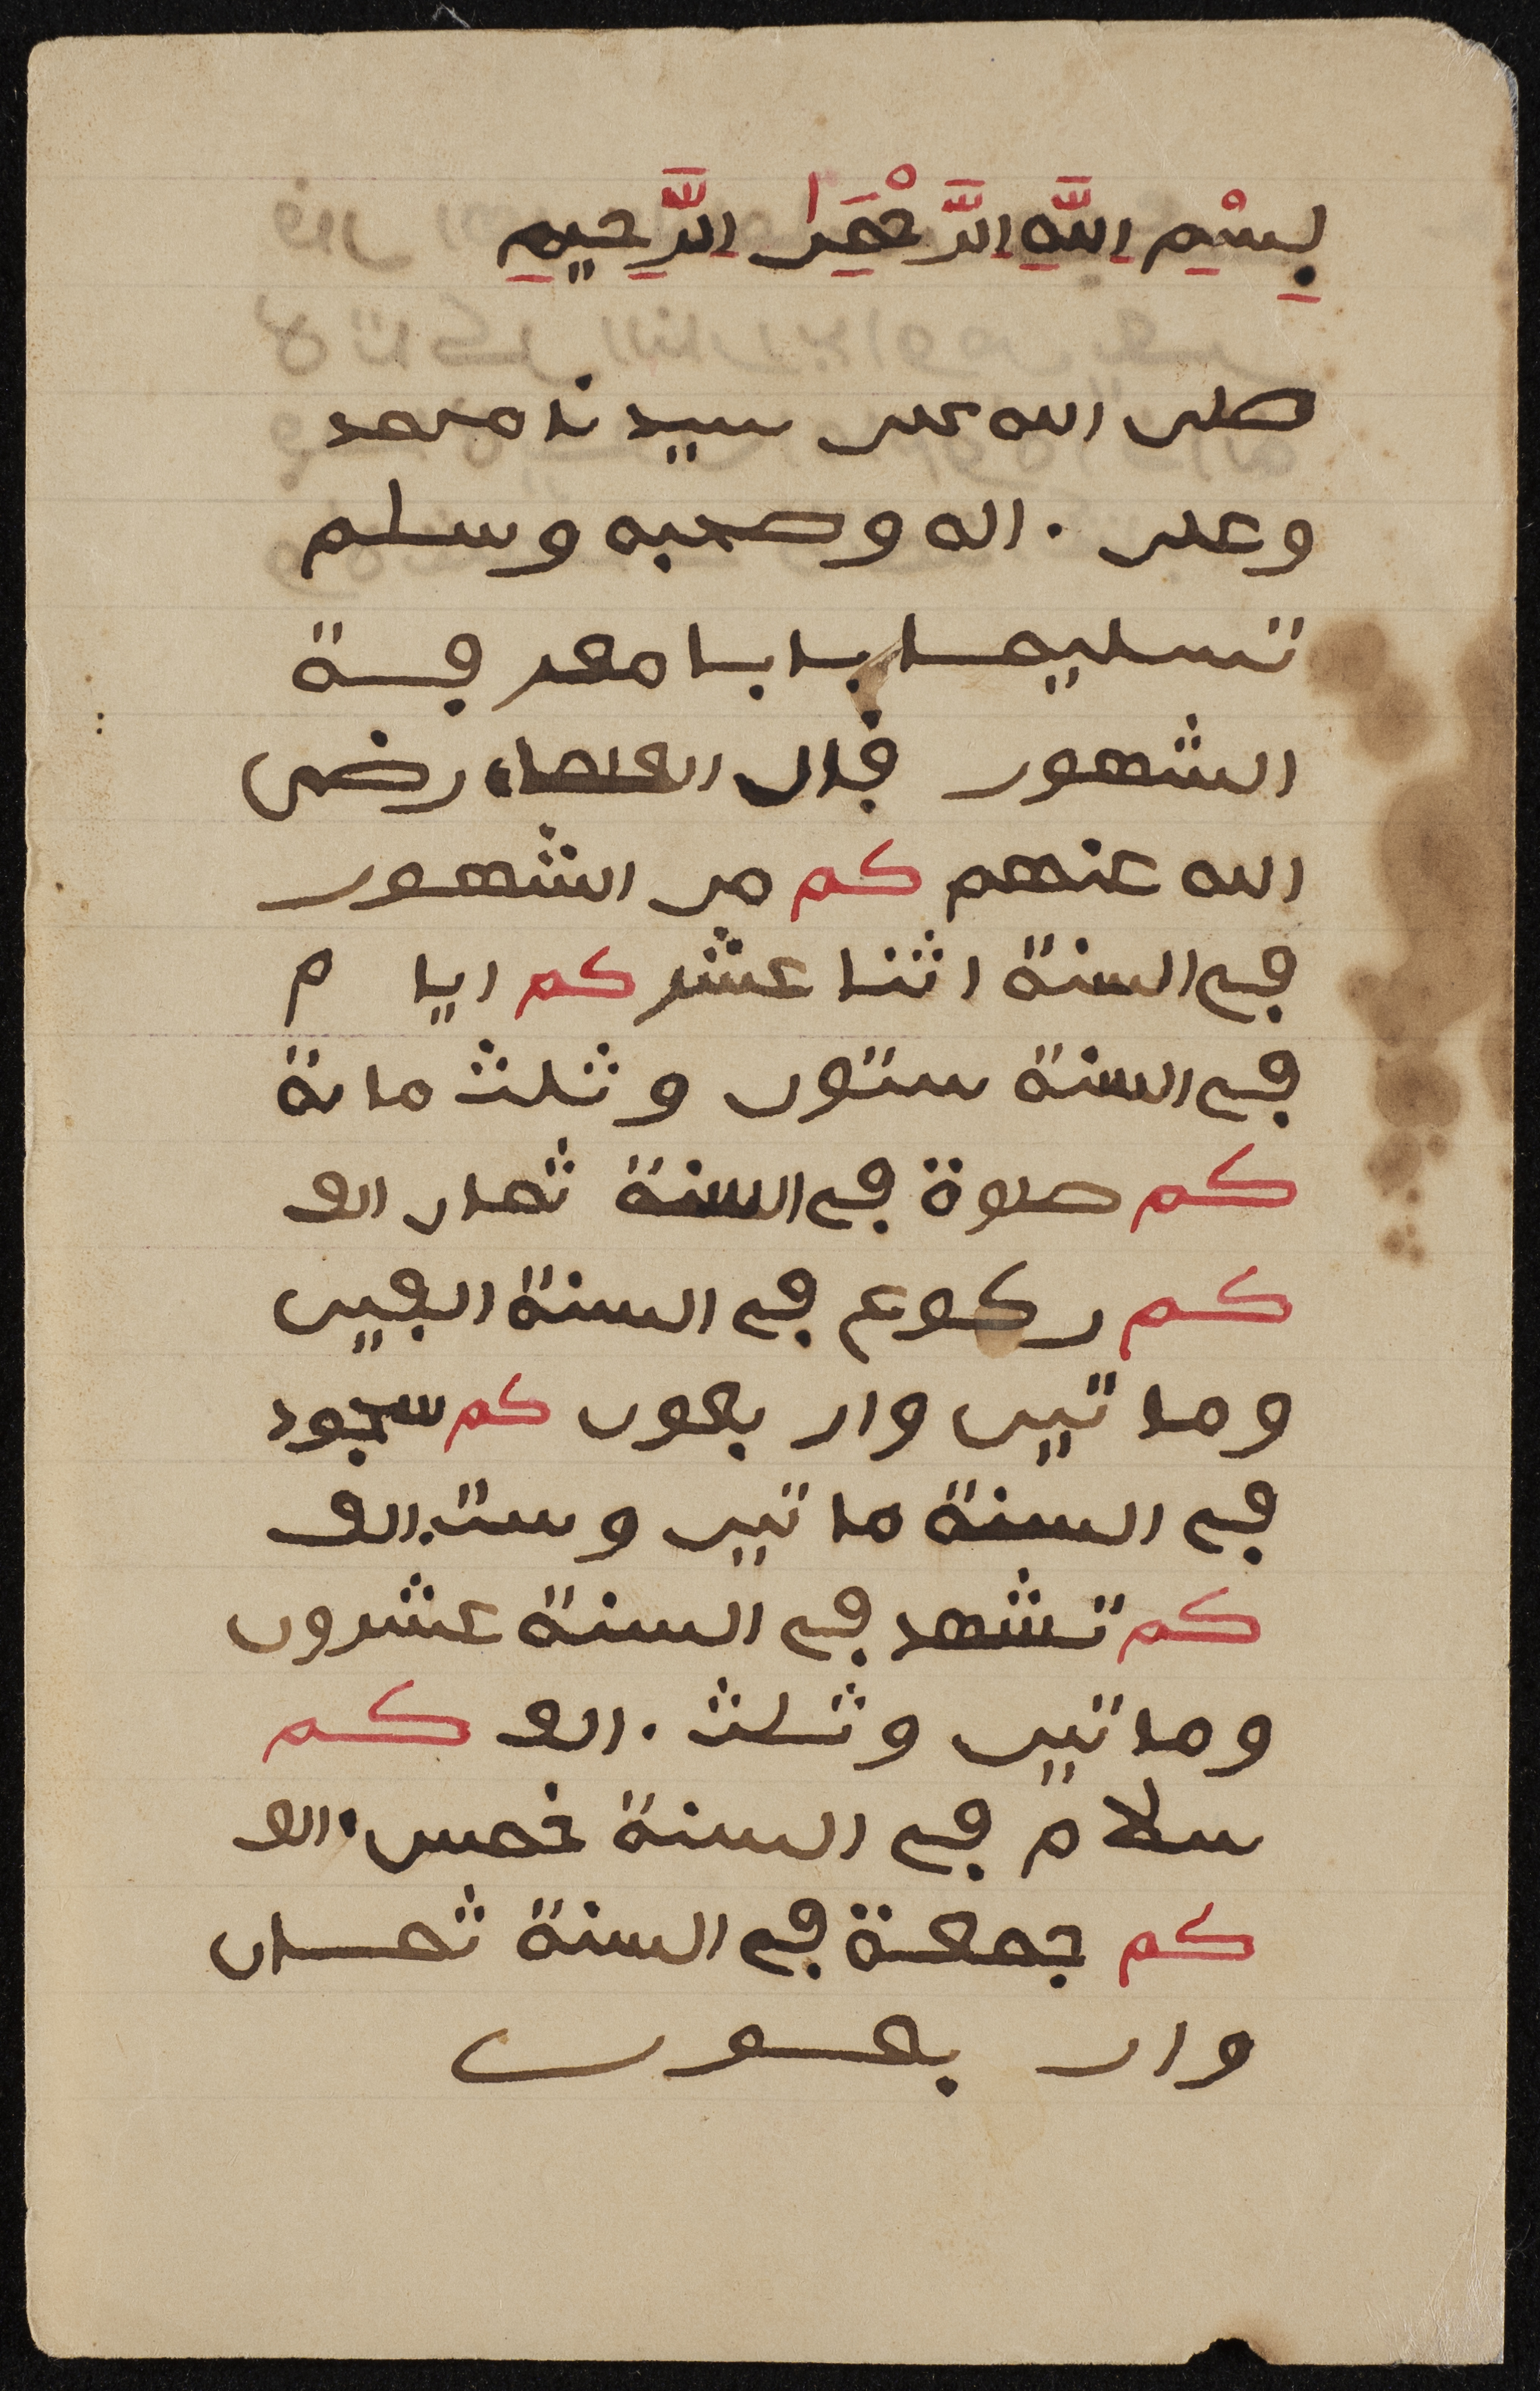 بِسْمِ اللَّهِ الرَّحْمَنِ الرَّحِيمِ
صلى الله على سيدنا محمد
وعلى اله وصحبه وسلم
تسليما بابا معرفة
الشهور قال العلماء رضى
الله عنهم كم من الشهور
في السنة اثنا عشر كم ايام
في السنة ستون وثلث مائة
كم صلوة في السنة ثمان الف
كم ركوع في السنة الفين
وماتين واربعون كم سجود
في السنة ماتين وست الف
كم تشهد في السنة عشرون
وماتين وثلث الف كم
سلام في السنة خمس الف
كم جمعة في السنة ثمان
واربعون